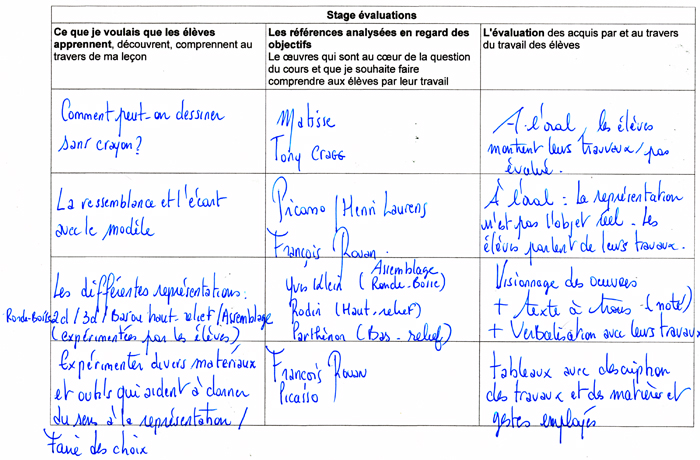 Stage évaluations
Ce que je voulais que les élèves
apprennent, découvrent, comprennent au
travers de ma leçon
Les références analysées en regard des
objectifs
Le œuvres qui sont au cœur de la question
du cours et que je souhaite faire
comprendre aux élèves par leur travail
L'évaluation des acquis par et au travers
du travail des élèves
Comment peut-on dessiner
sans crayon?
Matisse
Tony Cragg
A l'oral, les élèves
montrent leurs travaux / pas
évalué.
La ressemblance et l'écart
avec le modèle
Picasso / Henri Laurens
François Rouan.
À l'oral : La représentation
n'est pas l'objet réel. Les
élèves parlent de leurs travaux.
Les différentes représentations:
Ronde-Bosse 2d / 3d / Bas ou haut-relief / Assemblage
(expérimentées par les élèves)
Assemblage
Yves Klein ( Ronde-Bosse)
Rodin (Haut-relief)
Parthénon (Bas-relief)
Visionnage des oeuvres
+ texte à trous (noté)
+ Verbalisation avec leurs travaux
Expérimenter divers matériaux
et outils qui aident à donner
du sens à la représentation /
Faire des choix
François Rouan
Picasso
tableaux avec description
des travaux et des matières et
gestes employés